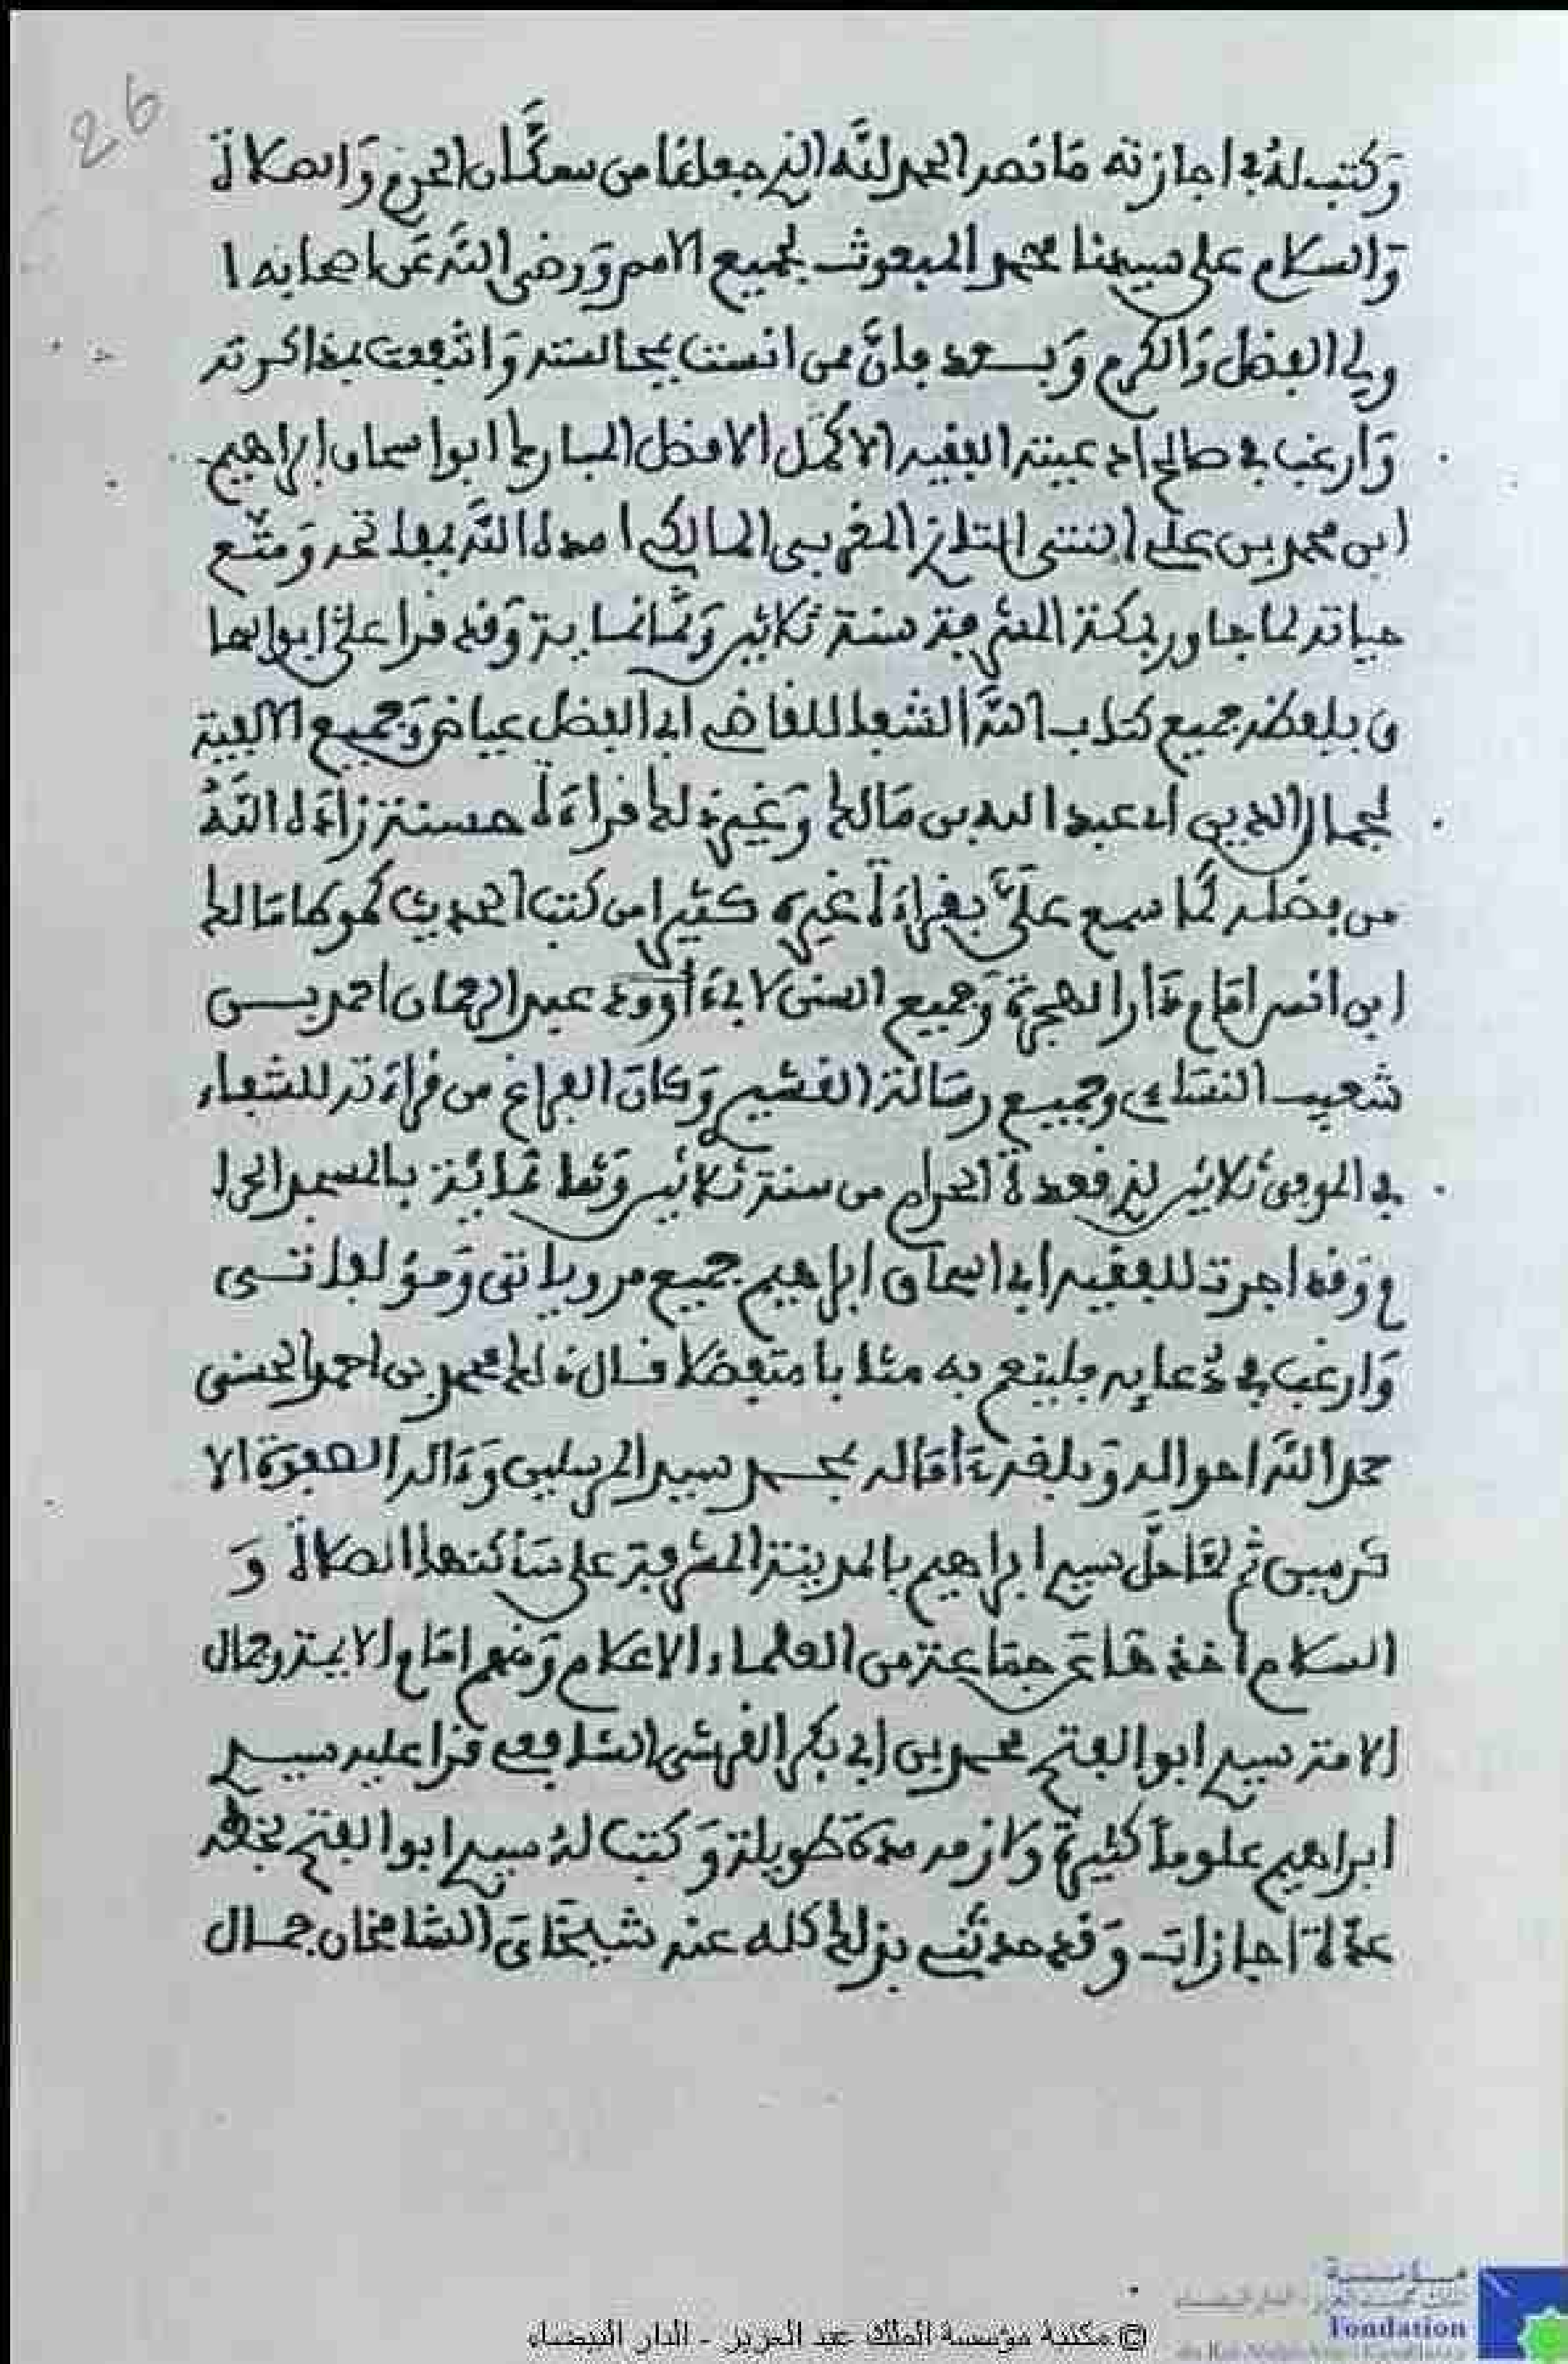 26
وَكتب لهُ في اجازته مَا نصه الحمد لله الذي جعلنَا من سكَّان الحرم وَالصلاة
وَالسلام على سيدنا محمد المبعوث لجميع الامم وَرضي اللَّه عَن اصحابه ا
ولي الفضل وَالكرم وَبـعـد فانَّ ممن انست بمجالسته وَانتفعت بمذاكرته
وَارغب في صالح ادعيته الفقيه الاكمَل الافضل المبارك ابو اسحاق ابراهيم
ابن محمد بن علي التلتي المغربي المالكي امده اللَّه بملاحته وَمتَّع
حياته لما جاور بمكة المشرفة سنة ثلاثين وَثمَانماية وَقد قرا عليَّ ابو اسحا
ق بلفظه جميع كتاب الشفا للقاضي ابي الفضل عياض وَجميع الالفية
لجمال الدين ابي عبد الله بن مَالك وَغيرهُ لك قراءَة حسنة زادَه اللَّهُ
من فضله كَما سمع عليَّ بقراءَة غيره كثيرا من كتب الحديث كموطا مَالك
ابن انس امَام دَار الهجرة وَجميع السنن لابي دَاوود عبد الرحمان احمد بـن
شعيب النسَاءي وجميع رسَالة القشيري وَكان الفراغ من قراءَته للشفاء
في الموفي ثلاثين لذي قعدة الحرام من سنة ثلاثين وَثمانمائة بالمسجد الحرا
م وَقد اجزت للفقيه ابي اسحاق ابراهيم جميع مروياتي وَمؤلفاتـي
وَارغب في دُعايه فلينعم به مثابا متفضلا قـال ذَلك محمد بن احمد الحسني
حمد اللَّه احواله وَبلغه ءَامَاله بمحـمد سيد المرسلين وَءَاله الصفوَة الا
كرمين ثم لمَا حلَّ سيدي ابراهيم بالمدينة المشرفة على سَاكنها الصلاة وَ
السلام اخذ هَا عَن جمَاعة من العلمَاء الاعلام وَمنهم امَام الايمة وجمال
الامة سيدي ابو الفتح محمد بن ابي بكر القرشي الشافعي قرا عليه سيـدي
ابراهيم علوماً كثيرة وَلازمه مدة طويلة وَكتب لهُ سيدي ابو الفتح بخطه
عدَّة اجازات وَقد حدثني بذلك كله عنه شيخَايَ الشامخان جمـال
© مكتبة مؤسسة الملك عبد العزيز - الدار البيضاء
Fondation